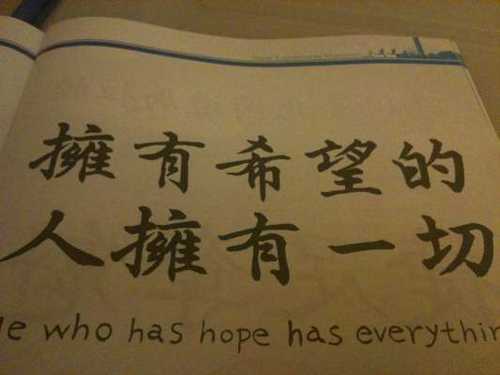 擁有希望的
人擁有一切
who has hope has